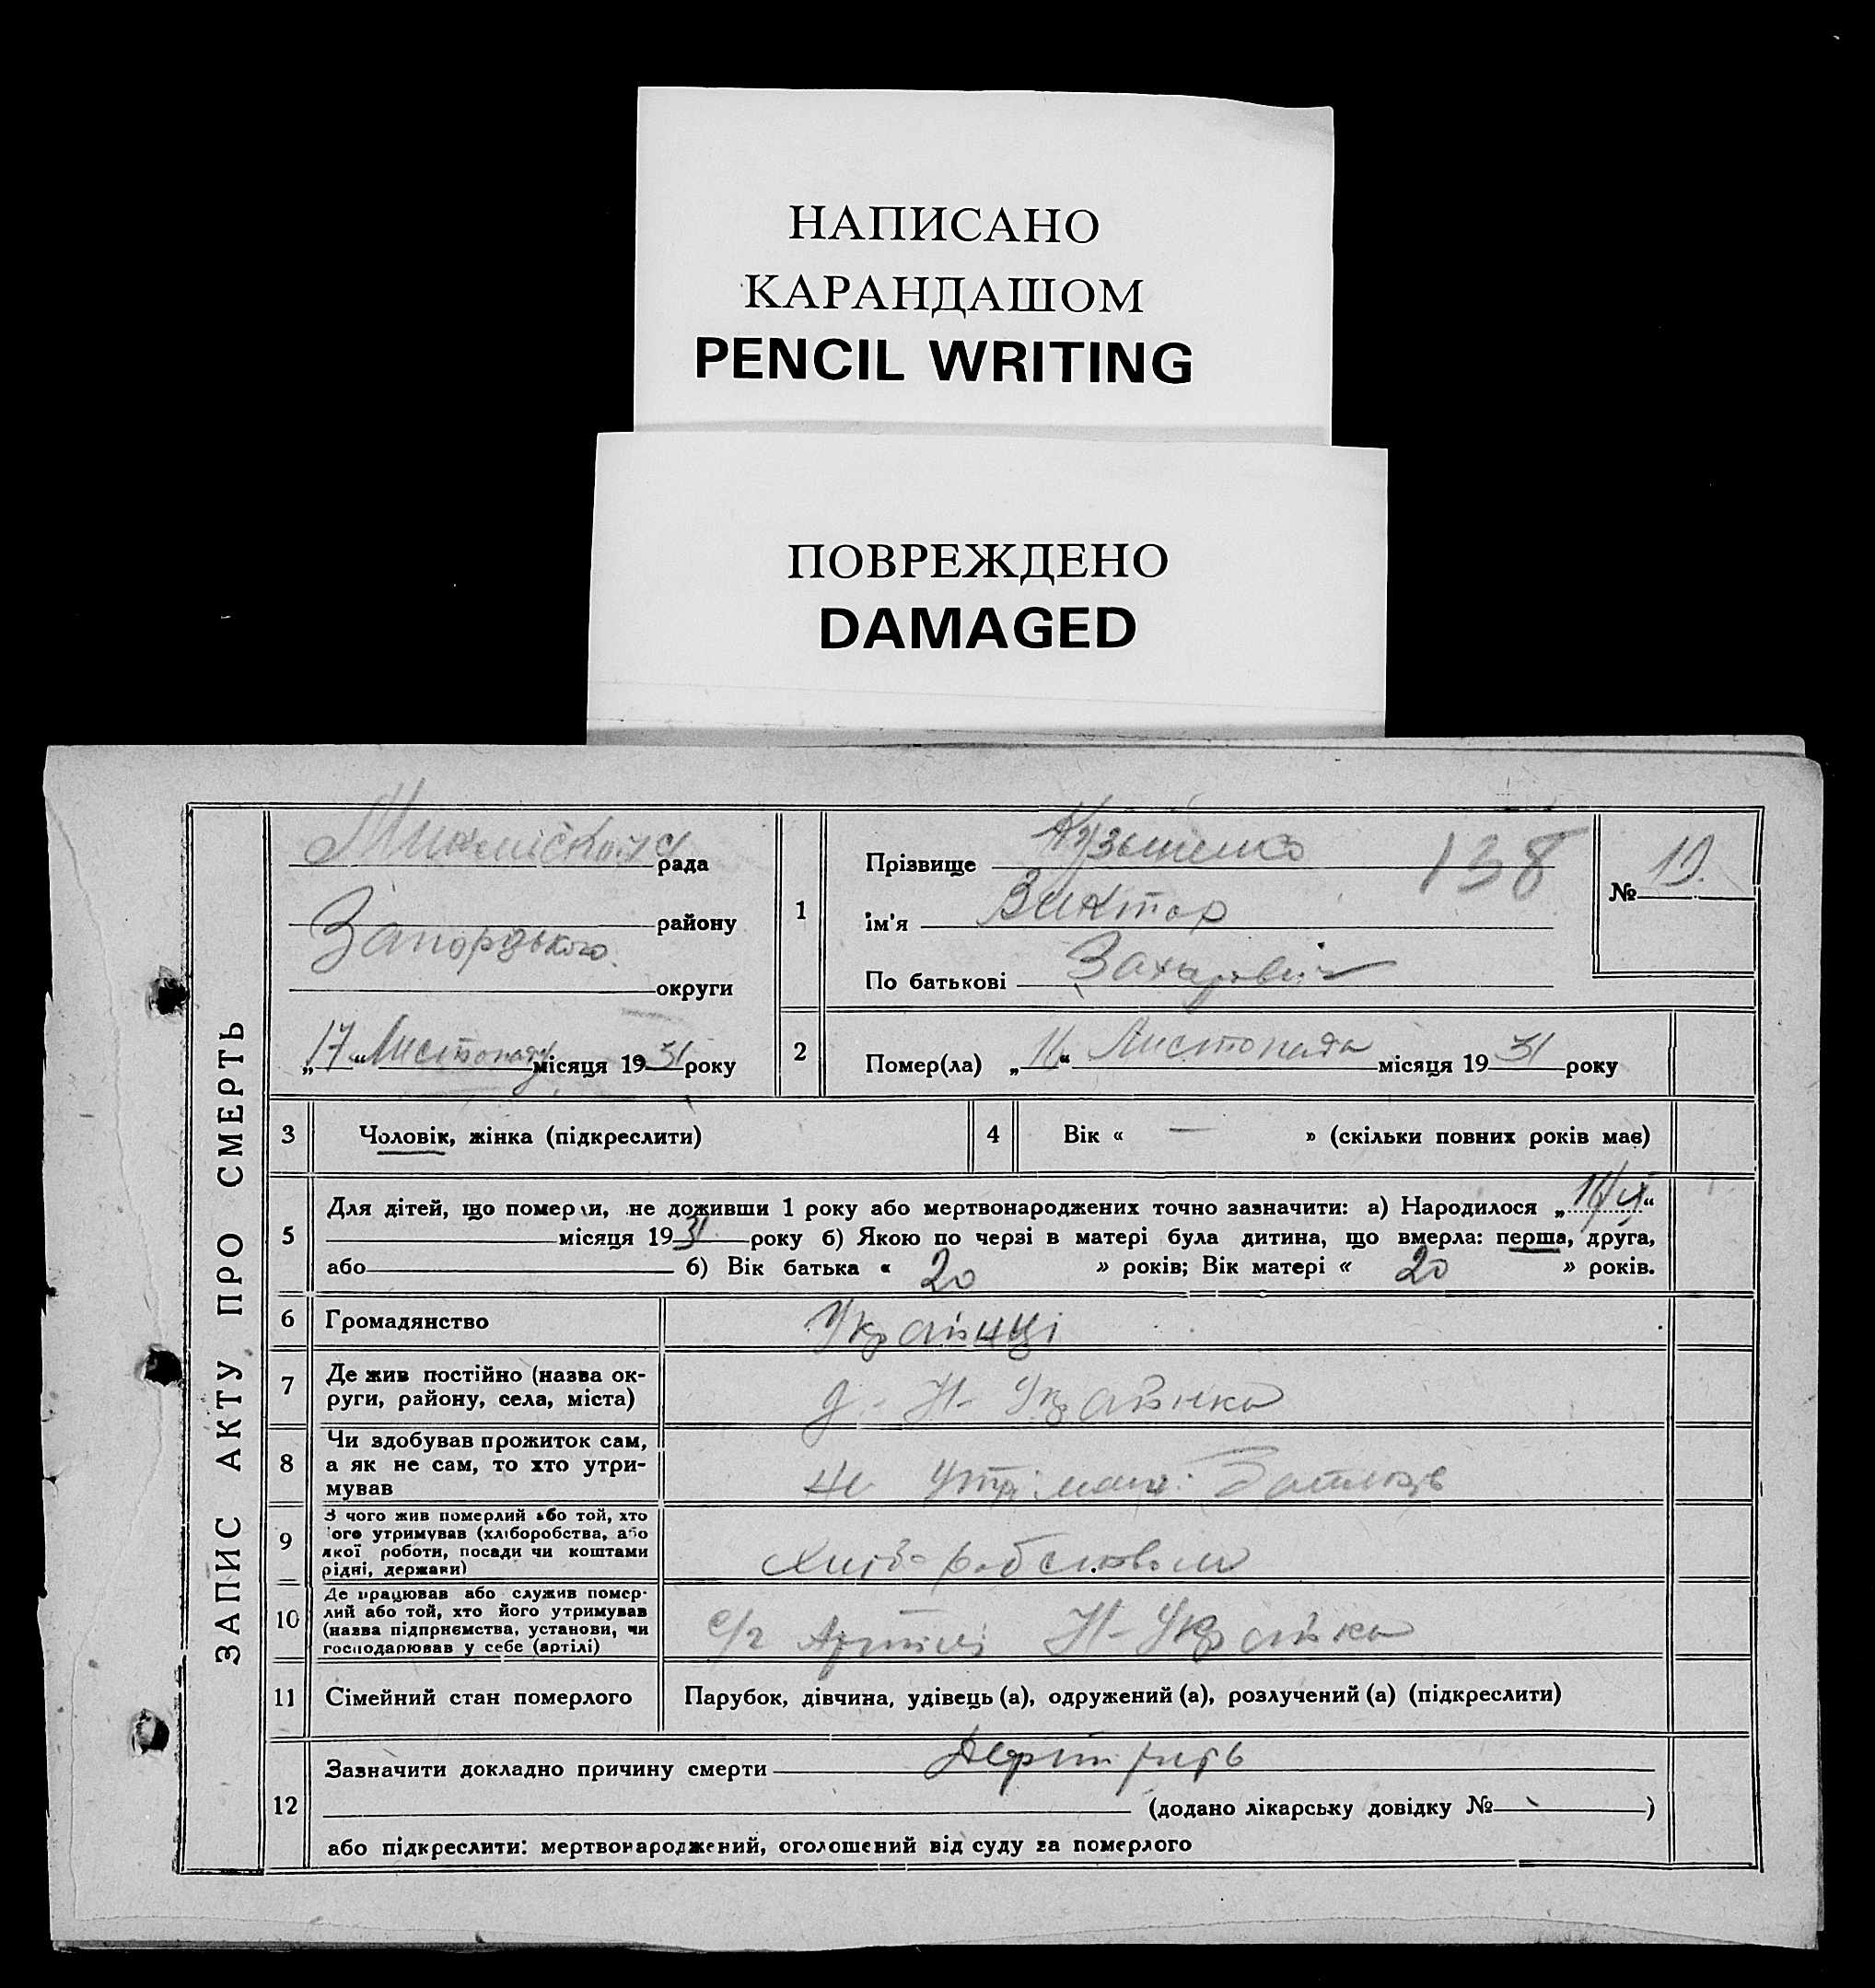 НАПИСАНО
КАРАНДАШОМ
PENCIL WRITING
ПОВРЕЖДЕНО
DAMAGED
ЗАПИС АКТУ ПРО СМЕРТЬ
рада
району
округи
„17“ Листопаду місяця 1931 року
1
Прізвище Кузьменко 138
ім'я Виктор
По батькові Захарович
№
2
Помер(ла) „ “ Листопада місяця 1931 року
3
Чоловік, жінка (підкреслити)
4
Вік « — » (скільки повних років має)
5
Для дітей, що померли, не доживши 1 року або мертвонароджених точно зазначити: а) Народилося „ “
місяця 1931 року б) Якою по черзі в матері була дитина, що вмерла: перша, друга,
або б) Вік батька « 20 » років; Вік матері « 20 » років.
6
Громадянство
Українці
7
Де жив постійно (назва ок-
руги, району, села, міста)
Н-
8
Чи здобував прожиток сам,
а як не сам, то хто утри-
мував
9
З чого жив померлий або той, хто
його утримував (хліборобства, або
якої роботи, посади чи коштами
рідні, держави)
10
Де працював або служив помер-
лий або той, хто його утримував
(назва підприємства, установи, чи
господарював у себе (артілі)
с/г Артілі Н-
11
Сімейний стан померлого
Парубок, дівчина, удівець (а), одружений (а), розлучений (а) (підкреслити)
12
Зазначити докладно причину смерти
(додано лікарську довідку № )
або підкреслити: мертвонароджений, оголошений від суду за померлого